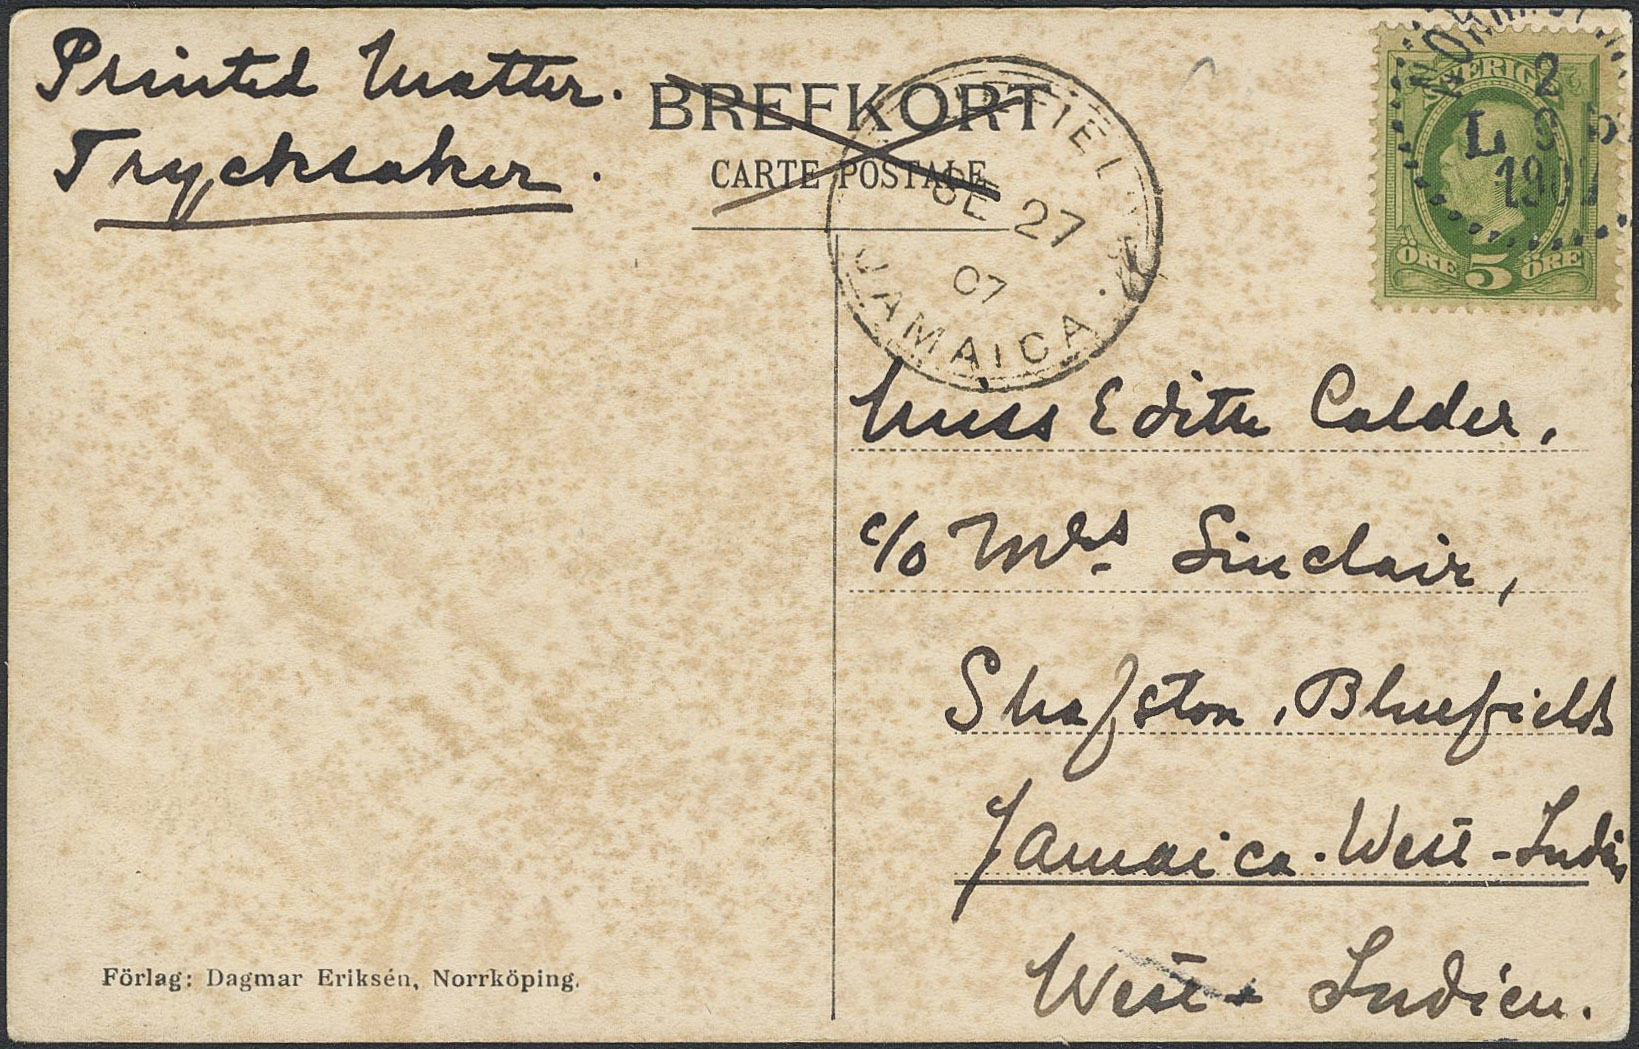 Printed Matter.
Trycksaker.
BREFKORT
CARTE POSTALE
27
07
JAMAICA
SVERIGE
2
1907
ÖRE 5 ÖRE
Miss Edith Calder,
c/o Mrs Sinclair,
Shafston, Bluefields
Jamaica. West-Indies
West-Indien.
Förlag: Dagmar Eriksén, Norrköping.